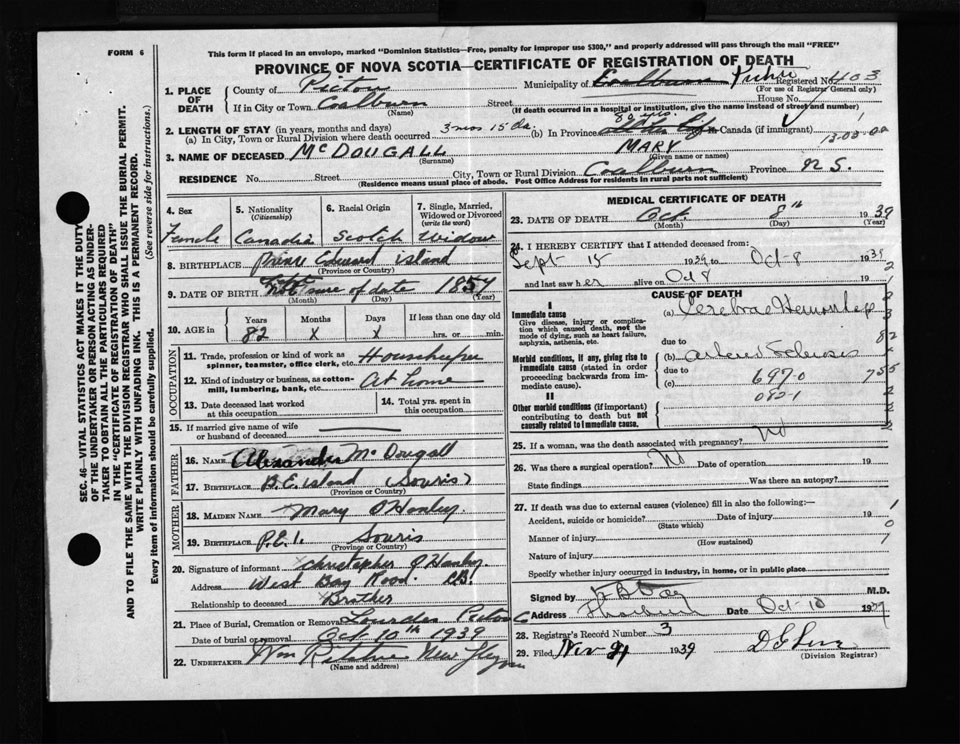 FORM 6
This form if placed in an envelope, marked "Dominion Statistics—Free, penalty for improper use $300," and properly addressed will pass through the mail "FREE"
PROVINCE OF NOVA SCOTIA—CERTIFICATE OF REGISTRATION OF DEATH
1. PLACE OF DEATH
County of Pictou
Municipality of Pictou Registered No. 403
(For use of Registrar General only)
If in City or Town Coalburn Street House No.
(Name) (If death occurred in a hospital or institution, give the name instead of street and number)
2. LENGTH OF STAY (in years, months and days)
(a) In City, Town or Rural Division where death occurred 3 mos 15 Da. (b) In Province 82 yrs. Canada (if immigrant)
3. NAME OF DECEASED McDOUGALL MARY
(Surname) (Given name or names)
RESIDENCE No. Street City, Town or Rural Division Coalburn Province N.S.
(Residence means usual place of abode. Post Office Address for residents in rural parts not sufficient)
4. Sex Female
5. Nationality (Citizenship) Canadia
6. Racial Origin Scotch
7. Single, Married, Widowed or Divorced (write the word) Widow
8. BIRTHPLACE Prince Edward Island
(Province or Country)
9. DATE OF BIRTH Not sure of date 1857
(Month) (Day) (Year)
10. AGE in Years Months Days If less than one day old
82 X X hrs. or min.
OCCUPATION
11. Trade, profession or kind of work as spinner, teamster, office clerk, etc. Housekeeper
12. Kind of industry or business, as cotton-mill, lumbering, bank, etc. At home
13. Date deceased last worked at this occupation
14. Total yrs. spent in this occupation
15. If married give name of wife or husband of deceased
FATHER
16. NAME Alexander McDougall
17. BIRTHPLACE P.E. Island (Souris)
(Province or Country)
MOTHER
18. MAIDEN NAME Mary O'Hanley
19. BIRTHPLACE P.E.I. Souris
(Province or Country)
20. Signature of informant Christopher O'Hanley
Address West Bay Road. C.B.
Relationship to deceased Brother
21. Place of Burial, Cremation or Removal Lourdes Pictou C
Date of burial or removal Oct 10th 1939
22. UNDERTAKER
(Name and address)
MEDICAL CERTIFICATE OF DEATH
23. DATE OF DEATH Oct 8th 1939
(Month) (Day) (Year)
24. I HEREBY CERTIFY that I attended deceased from:
Sept 15 1939 to Oct-8 1939
and last saw her alive on Oct 8 19
CAUSE OF DEATH
I
Immediate cause
Give disease, injury or complication which caused death, not the mode of dying, such as heart failure, asphyxia, asthenia, etc.
(a)
due to
Morbid conditions, if any, giving rise to immediate cause (stated in order proceeding backwards from immediate cause).
(b)
due to
(c) 697.0
082-1
II
Other morbid conditions (if important) contributing to death but not causally related to immediate cause.
25. If a woman, was the death associated with pregnancy? No
26. Was there a surgical operation? No Date of operation 19
State findings Was there an autopsy?
27. If death was due to external causes (violence) fill in also the following:—
Accident, suicide or homicide? Date of injury 19
(State which)
Manner of injury
(How sustained)
Nature of injury
Specify whether injury occurred in industry, in home, or in public place
Signed by M.D.
Address Thorburn Date Oct-10 1939
28. Registrar's Record Number 3
29. Filed 1939
(Division Registrar)
SEC. 46—VITAL STATISTICS ACT MAKES IT THE DUTY OF THE UNDERTAKER OR PERSON ACTING AS UNDERTAKER TO OBTAIN ALL THE PARTICULARS REQUIRED IN THE "CERTIFICATE OF REGISTRATION OF DEATH" AND TO FILE THE SAME WITH THE DIVISION REGISTRAR WHO SHALL ISSUE THE BURIAL PERMIT.
WRITE PLAINLY WITH UNFADING INK. THIS IS A PERMANENT RECORD.
Every item of information should be carefully supplied. (See reverse side for instructions.)